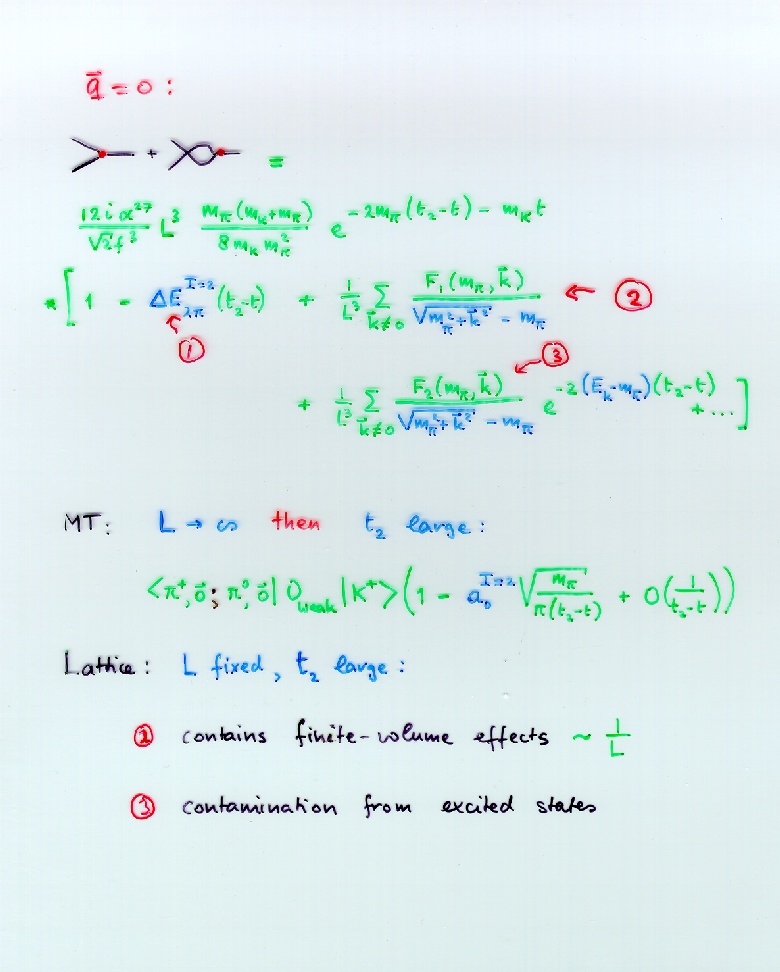 q⃗ = 0 :
+ =
12 i α²⁷ / √2 f³ L³ m_π (m_K + m_π) / 8 m_K m_π² e^{-2m_π(t₂-t) - m_K t}
* [ 1 - ΔE_{2π}^{I=2} (t₂-t) + 1/L³ Σ_{k⃗≠0} F₁(m_π, k⃗) / √(m_π² + k⃗²) - m_π ← ②
①
③
+ 1/L³ Σ_{k⃗≠0} F₂(m_π, k⃗) / √(m_π² + k⃗²) - m_π e^{-2(E_k - m_π)(t₂-t)} + ... ]
MT: L → ∞ then t₂ large :
<π⁺, 0⃗ ; π⁰, 0⃗ | O_weak | K⁺> (1 - a₀^{I=2} √(m_π / π(t₂-t)) + O(1/(t₂-t)))
Lattice : L fixed, t₂ large :
② contains finite-volume effects ~ 1/L
③ contamination from excited states